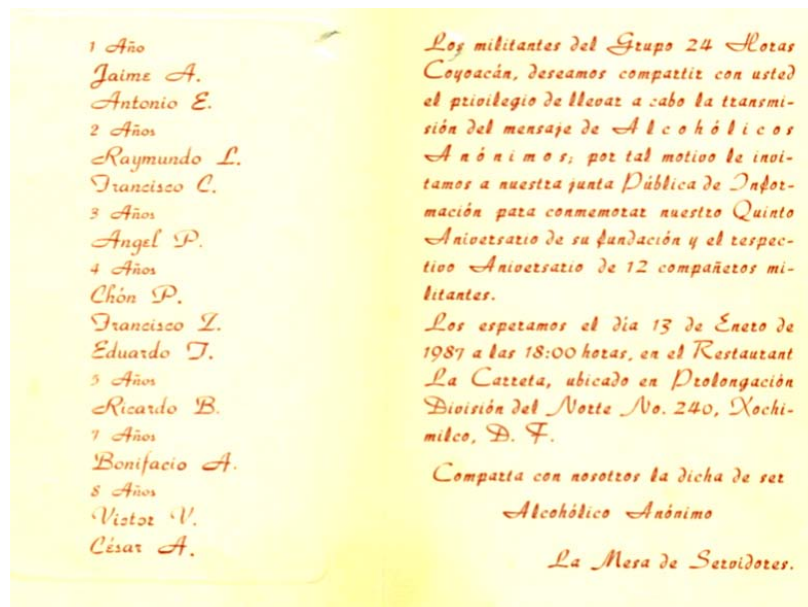 1 Año
Jaime A.
Antonio E.
2 Años
Raymundo L.
Francisco C.
3 Años
Angel P.
4 Años
Chón P.
Francisco Z.
Eduardo T.
5 Años
Ricardo B.
7 Años
Bonifacio A.
8 Años
Victor V.
César A.
Los militantes del Grupo 24 Horas
Coyoacán, deseamos compartir con usted
el privilegio de llevar a cabo la transmi-
sión del mensaje de Alcohólicos
Anónimos; por tal motivo le invi-
tamos a nuestra junta Pública de Infor-
mación para conmemorar nuestro Quinto
Aniversario de su fundación y el respec-
tivo Aniversario de 12 compañeros mi-
litantes.
Los esperamos el día 13 de Enero de
1987 a las 18:00 horas, en el Restaurant
La Carreta, ubicado en Prolongación
División del Norte No. 240, Xochi-
milco, D. F.
Comparta con nosotros la dicha de ser
Alcohólico Anónimo
La Mesa de Servidores.